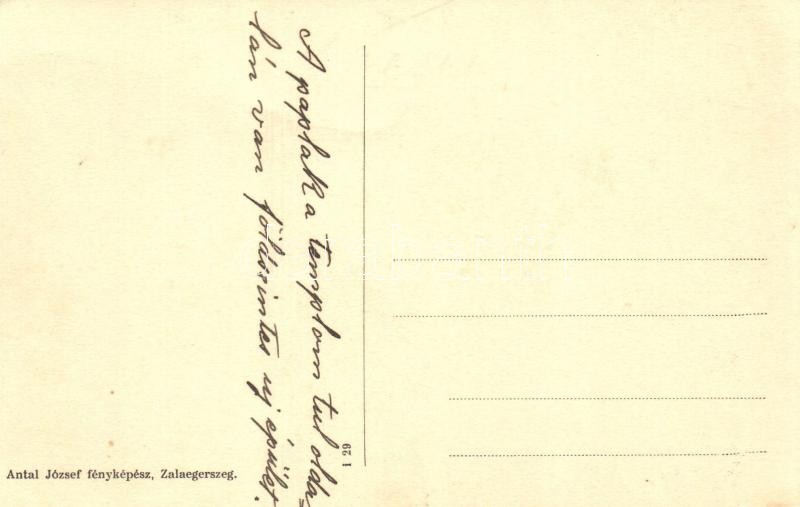 A paplak a templom tul olda=
lán van földszintes uj épület.
1 29
Antal József fényképész, Zalaegerszeg.